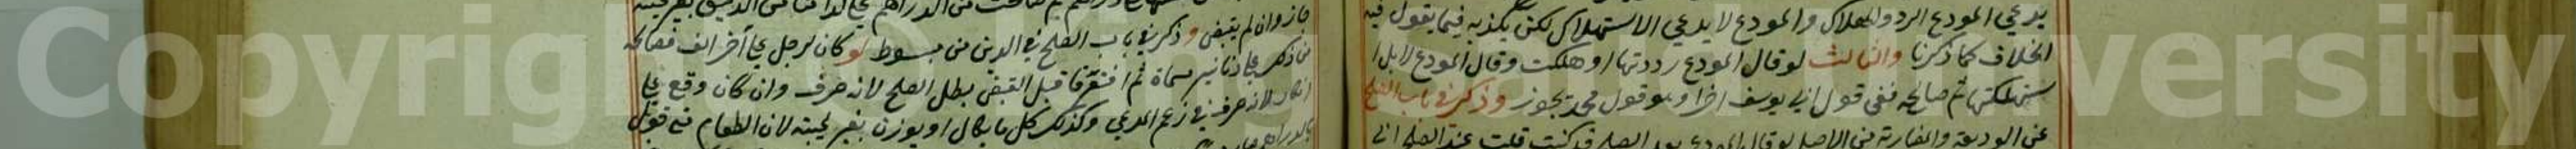 يدعي المودع الرد والهلاك والمودع لا يدعي الاستهلاك لكن يكذبه فيما يقول فيه
الخلاف كما ذكرنا والثالث لو قال المودع رددتها او هلكت وقال المودع لا بل ا
ستهلكتها ثم صالحه ففي قول ابي يوسف اخرا وهو قول محمد يجوز وذكر في باب الصلح
عن الوديعة والمضاربة من الاصل لو قال المودع بعد الصلح قد كنت قلت عند الصلح اني
جاز وان لم يقبض وذكر في باب الصلح في الدين من مبسوط لو كان لرجل على آخر الف فصالحه
من ذلك على دنانير مسماة ثم افترقا قبل القبض بطل الصلح لانه صرف وان كان وقع على
انكار لانه صرف في زعم المدعي وكذلك كل ما يكال او يوزن بغير عينه لان الطعام في قول
Copyright © King University